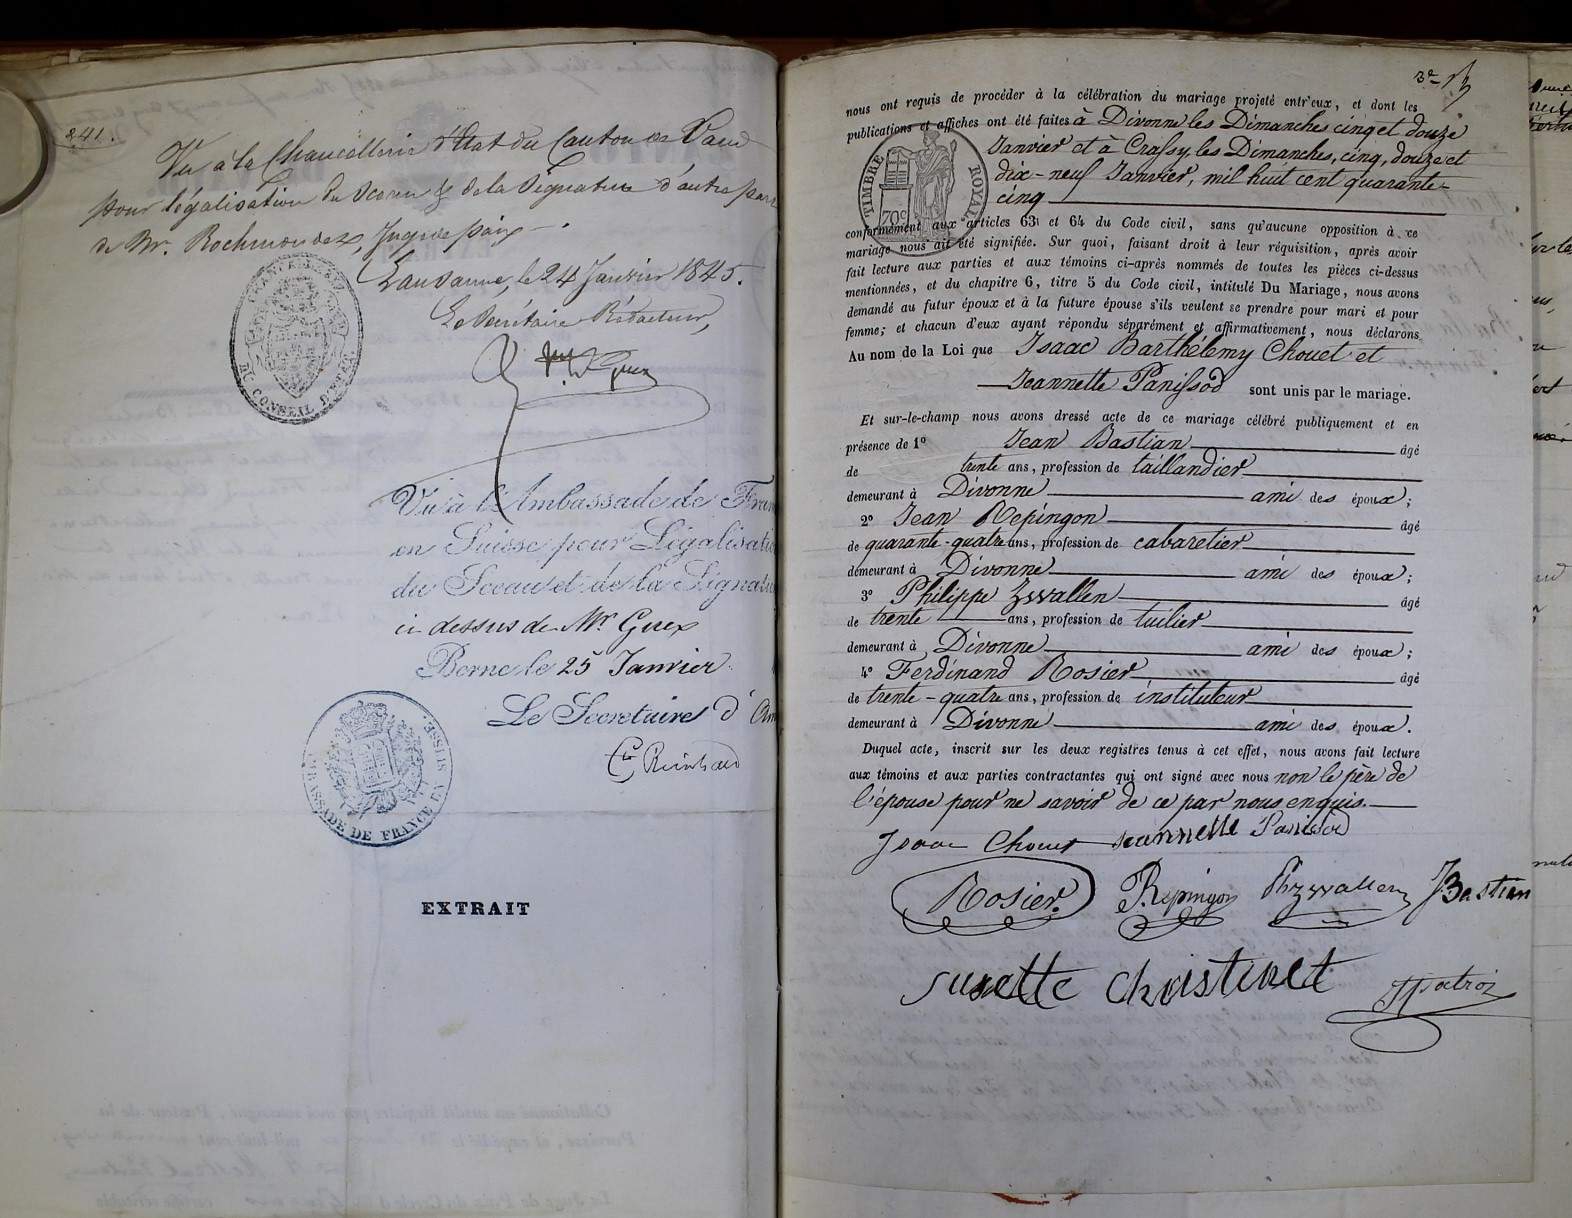 841.
Vu à la Chancellerie d'Etat du Canton de Vaud
pour légalisation du Sceau & de la Signature d'autre part
de Mr. Rochmondet, Juge de paix.
Lausanne, le 24 Janvier 1845.
Le Secrétaire Rédacteur,
Guex
CHANCELLERIE
DU CONSEIL D'ETAT
Vu à l'Ambassade de Fran
en Suisse pour Légalisatio
du Sceau et de la Signatu
ci dessus de Mr Guex
Berne le 25 Janvier
Le Secretaire d'Am
Cte Reinhard
AMBASSADE DE FRANCE EN SUISSE.
EXTRAIT
nous ont requis de procéder à la célébration du mariage projeté entr'eux, et dont les
publications et affiches ont été faites à Divonne les Dimanches cinq et douze
Janvier et à Crassy, les Dimanches, cinq, douze et
dix-neuf Janvier, mil huit cent quarante-
cinq
TIMBRE ROYAL
70c
conformément aux articles 63 et 64 du Code civil, sans qu'aucune opposition à ce
mariage nous ait été signifiée. Sur quoi, faisant droit à leur réquisition, après avoir
fait lecture aux parties et aux témoins ci-après nommés de toutes les pièces ci-dessus
mentionnées, et du chapitre 6, titre 5 du Code civil, intitulé Du Mariage, nous avons
demandé au futur époux et à la future épouse s'ils veulent se prendre pour mari et pour
femme; et chacun d'eux ayant répondu séparément et affirmativement, nous déclarons
Au nom de la Loi que Isaac Barthélemy Chouet et
Jeannette Panissod sont unis par le mariage.
Et sur-le-champ nous avons dressé acte de ce mariage célébré publiquement et en
présence de 1° Jean Bastian âgé
de trente ans, profession de taillandier
demeurant à Divonne ami des époux;
2° Jean Repingon âgé
de quarante-quatre ans, profession de cabaretier
demeurant à Divonne ami des époux;
3° Philippe Zwallen âgé
de trente ans, profession de tuilier
demeurant à Divonne ami des époux;
4° Ferdinand Rosier âgé
de trente-quatre ans, profession de instituteur
demeurant à Divonne ami des époux.
Duquel acte, inscrit sur les deux registres tenus à cet effet, nous avons fait lecture
aux témoins et aux parties contractantes qui ont signé avec nous non le père de
l'épouse pour ne savoir de ce par nous enquis.
Isaac Chouet Jeannette Panissod
Rosier Repingon Ph zwallen J Bastian
Susette Christinet